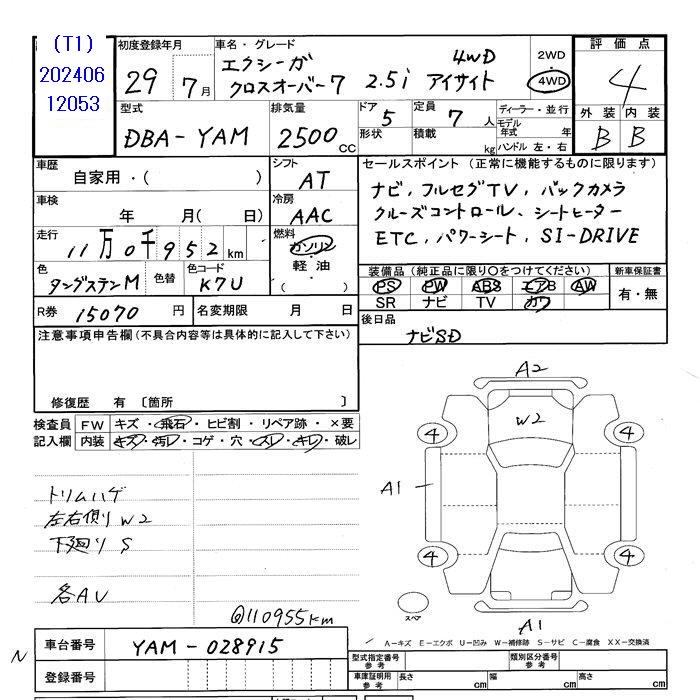 (T1)
202406
12053
初度登録年月
29年7月
車名・グレード
エクシーガ 4WD
クロスオーバー7 2.5i アイサイト
2WD
・
4WD
評価点
4
外装 内装
B B
型式
DBA-YAM
排気量
2500cc
ドア
5
形状
定員
7人
積載
kg
ディーラー・並行
モデル年式 年
ハンドル 左・右
車歴
自家用・( )
車検
年 月( 日)
走行
11万0千952km
色
タングステンM
色替
色コード
K7U
シフト
AT
冷房
AAC
燃料
ガソリン
・
軽油
( )
セールスポイント (正常に機能するものに限ります)
ナビ, フルセグTV, バックカメラ
クルーズコントロール、シートヒーター
ETC, パワーシート, SI-DRIVE
装備品 (純正品に限り○をつけてください)
PS PW ABS エアB AW
SR ナビ TV カワ
新車保証書
有・無
R券 15070円
名変期限 月 日
後日品
ナビSD
注意事項申告欄(不具合内容等は具体的に記入して下さい)
修復歴 有 〔箇所 〕
検査員 FW キズ・飛石・ヒビ割・リペア跡・×要
記入欄 内装 キズ・汚レ・コゲ・穴・スレ・キレ・破レ
トリムハゲ
左右側リW2
下廻リS
各AU
@110955km
A2
W2
4
4
A1
4
4
スペア
A1
A-キズ E-エクボ U-凹み W-補修跡 S-サビ C-腐食 XX-交換済
N
車台番号 YAM-028915
登録番号
型式指定番号
参考
類別区分番号
参考
車庫証明用
参考
長さ cm
幅 cm
高さ cm